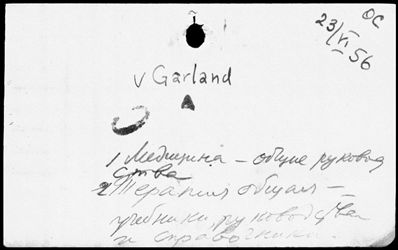 ОС
23/VI 56
v Garland
1 Медицина – общие руковод
ства
2 Терапия общая –
учебники, руководства
и справочники.